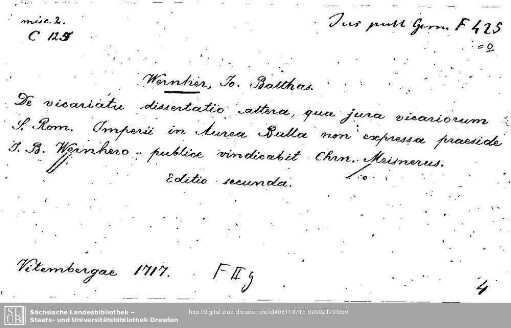 misc. 2.
C 125
Jus publ. Germ. F 425
=o
Wernher, Jo. Balthas.
De vicariatu dissertatio altera, qua jura vicariorum
S. Rom. Imperii in Aurea Bulla non expressa praeside
J. B. Wernhero .. publice vindicabit Chrn. Meisnerus.
Editio secunda.
Vitembergae 1717. F II g
4
Sächsische Landesbibliothek –
Staats- und Universitätsbibliothek Dresden